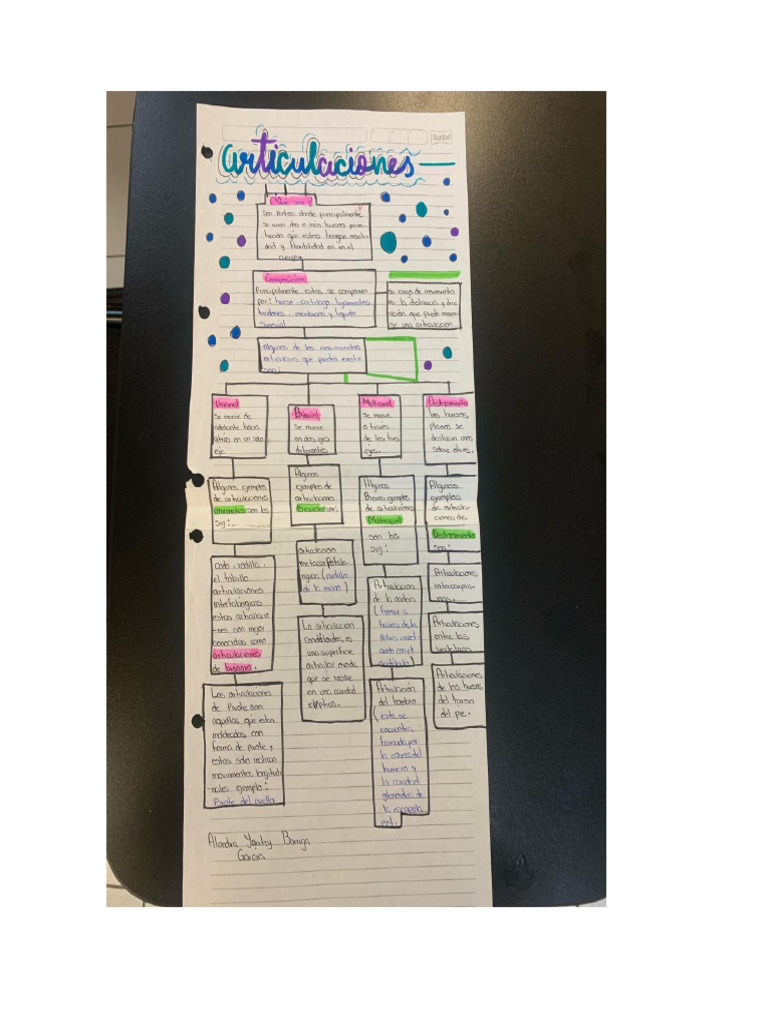 articulaciones
Scribe
¿Que son?
Son
donde principalmente
se unen dos o mas huesos
tiendo que estos tengan movili-
dad y flexibilidad en en el
cuerpo.
Composicion
Principalmente estas se componen
por: hueso, cartilago, ligamentos
tendones, membrana y liquido
sinovial
Su rango de movimiento
es la distancia y dire
cción que puede mover
se una articulacion
Algunos de los movimientos
articulares que
son:
Uniaxial
Se mueve de
adelante hacia
atras en un solo
eje
Biaxial
Se mueve
en dos ejes
diferentes
Multiaxial
Se mueve
a traves
de los tres
ejes.
Deslizamiento
Los huesos
planos se
deslizan unos
sobre otros.
Algunos ejemplos
de articulaciones
Uniaxiales son los
sig:
Algunos
ejemplos de
articulaciones
Biaxiales son:
Algunos
ejemplos
de articulaciones
Multiaxial
son los
sig:
Algunos
ejemplos
de articula-
ciones de
Deslizamiento
son:
Codo, rodilla,
el tobillo
articulaciones
interfalangicas
estas articulacio
-nes son mejor
conocidas como
articulaciones
de bisagra.
articulacion
metacarpofalan-
gica (nudillo
de la mano)
Articulacion
de la cadera
(femur a
traves de la
pelvis
con el
acetabulo)
Articulaciones
intercarpia-
nas.
Articulaciones
entre las
vertebras
Articulaciones
de los huesos
del tarso
del pie.
La articulacion
condiloidea, es
una superficie
articular ovoide
que se recibe
en una cavidad
eliptica.
Las articulaciones
de Pivote son
aquellas que estan
moldeadas con
forma de pivote y
estas solo
movimientos longitudi
-nales ejemplo:
Pivote del cuello
Articulación
del hombro
(esta se
encuentra
formada por
la cabeza del
humero y
la cavidad
glenoidea de
la escapula
Garcia